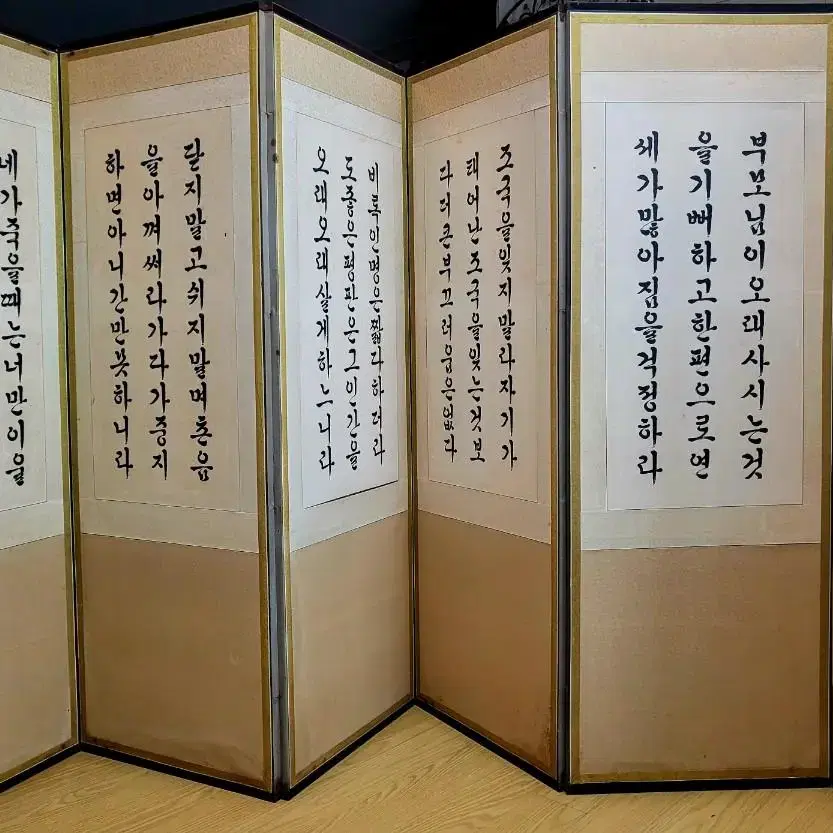 부모님이오래사시는것
을기뻐하고한편으로연
세가많아짐을걱정하라
조국을잊지말라자기가
태어난조국을잊는것보
다더큰부끄러움은없다
비록인명은짧다하더라
도좋은평판은그인간을
오래오래살게하느니라
닫지말고쉬지말며촌음
을아껴써라가다가중지
하면아니간만못하니라
네가죽을때는너만이울